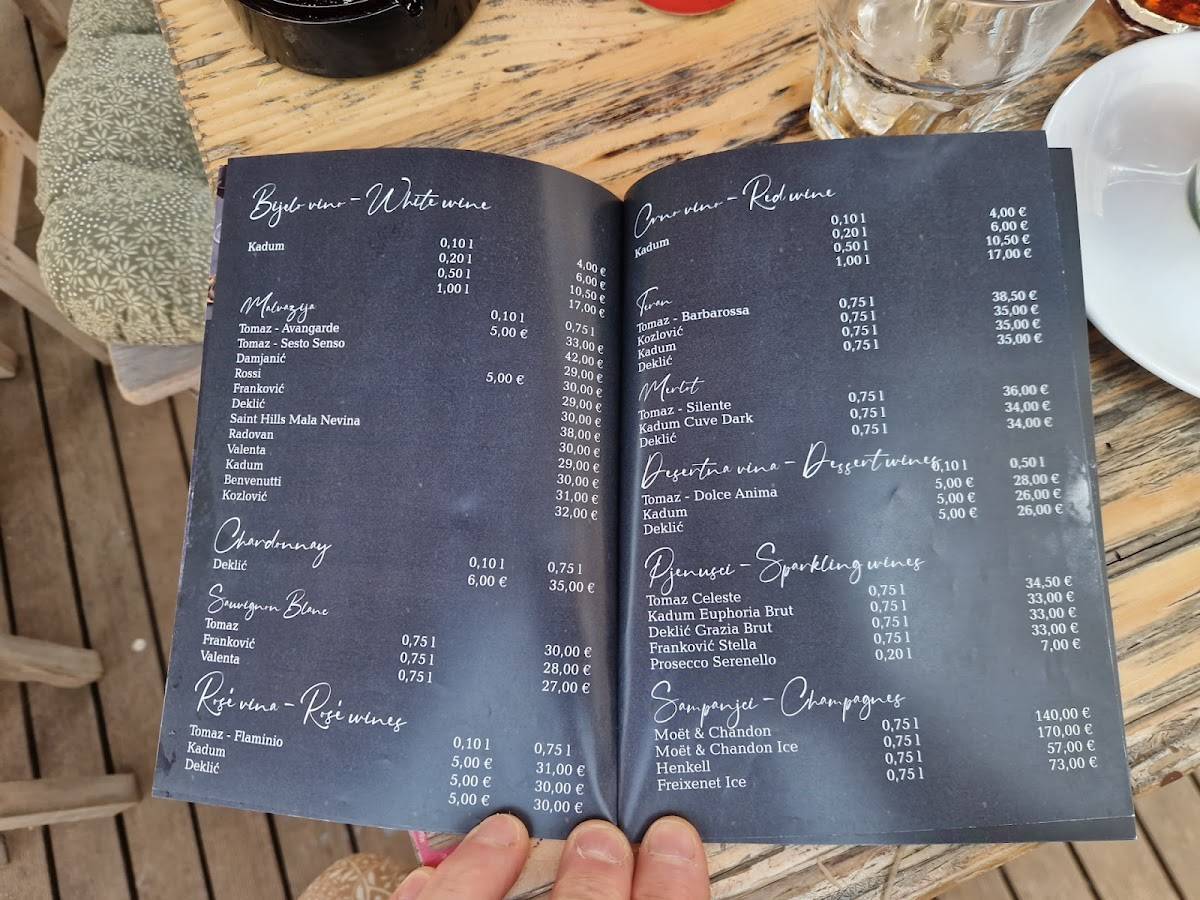 Bijelo vino - White wine
Kadum 0,10 l 4,00 €
0,20 l 6,00 €
0,50 l 10,50 €
1,00 l 17,00 €
Malvazija 0,10 l 0,75 l
Tomaz - Avangarde 5,00 € 33,00 €
Tomaz - Sesto Senso 42,00 €
Damjanić 29,00 €
Rossi 5,00 € 30,00 €
Franković 29,00 €
Deklić 30,00 €
Saint Hills Mala Nevina 38,00 €
Radovan 30,00 €
Valenta 29,00 €
Kadum 30,00 €
Benvenutti 31,00 €
Kozlović 32,00 €
Chardonnay 0,10 l 0,75 l
Deklić 6,00 € 35,00 €
Sauvignon Blanc
Tomaz 0,75 l 30,00 €
Franković 0,75 l 28,00 €
Valenta 0,75 l 27,00 €
Rosé vina - Rosé wines
0,10 l 0,75 l
Tomaz - Flaminio 5,00 € 31,00 €
Kadum 5,00 € 30,00 €
Deklić 5,00 € 30,00 €
Crno vino - Red wine
Kadum 0,10 l 4,00 €
0,20 l 6,00 €
0,50 l 10,50 €
1,00 l 17,00 €
Teran
Tomaz - Barbarossa 0,75 l 38,50 €
Kozlović 0,75 l 35,00 €
Kadum 0,75 l 35,00 €
Deklić 0,75 l 35,00 €
Merlot
Tomaz - Silente 0,75 l 36,00 €
Kadum Cuve Dark 0,75 l 34,00 €
Deklić 0,75 l 34,00 €
Desertna vina - Dessert wines 0,10 l 0,50 l
Tomaz - Dolce Anima 5,00 € 28,00 €
Kadum 5,00 € 26,00 €
Deklić 5,00 € 26,00 €
Pjenusci - Sparkling wines
Tomaz Celeste 0,75 l 34,50 €
Kadum Euphoria Brut 0,75 l 33,00 €
Deklić Grazia Brut 0,75 l 33,00 €
Franković Stella 0,75 l 33,00 €
Prosecco Serenello 0,20 l 7,00 €
Sampanjci - Champagnes
Moët & Chandon 0,75 l 140,00 €
Moët & Chandon Ice 0,75 l 170,00 €
Henkell 0,75 l 57,00 €
Freixenet Ice 0,75 l 73,00 €